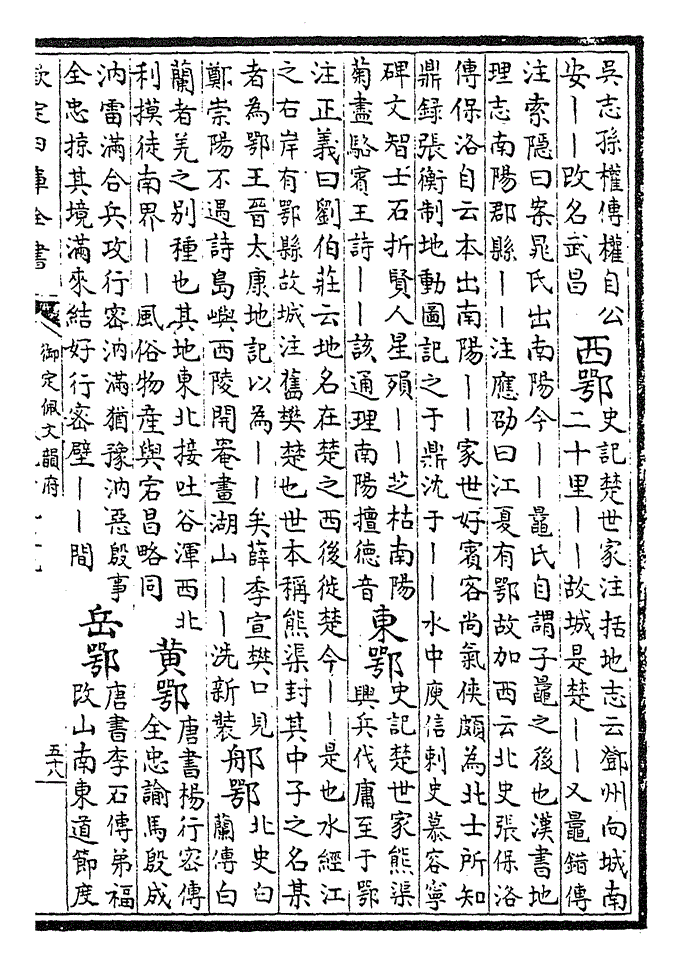 吳志孫權傳權自公
安——改名武昌
西鄂
史記楚世家注括地志云鄧州向城南
二十里——故城是楚——又鼂錯傳
注索隱曰案晁氏出南陽今——鼂氏自謂子鼂之後也漢書地
理志南陽郡縣——注應劭曰江夏有鄂故加西云北史張保洛
傳保洛自云本出南陽——家世好賓客尚氣俠頗為北士所知
鼎錄張衡制地動圖記之于鼎沈于——水中庾信刺史慕容寧
碑文智士石折賢人星殞——芝枯南陽
菊盡駱賓王詩——該通理南陽擅德音
東鄂
史記楚世家熊渠
興兵伐庸至于鄂
注正義曰劉伯莊云地名在楚之西後徙楚今——是也水經江
之右岸有鄂縣故城注舊樊楚也世本稱熊渠封其中子之名某
者為鄂王晉太康地記以為——矣薛季宣樊口見
鄭崇陽不遇詩島嶼西陵開菴畫湖山——洗新裝
郍鄂
北史白
蘭傳白
蘭者羌之別種也其地東北接吐谷渾西北
利摸徒南界——風俗物產與宕昌略同
黃鄂
唐書楊行密傳
全忠諭馬殷成
汭雷滿合兵攻行密汭滿猶豫汭惡殷事
全忠掠其境滿來結好行密壁——間
岳鄂
唐書李石傳弟福
改山南東道節度
欽定四庫全書
御定佩文韻府
五十八